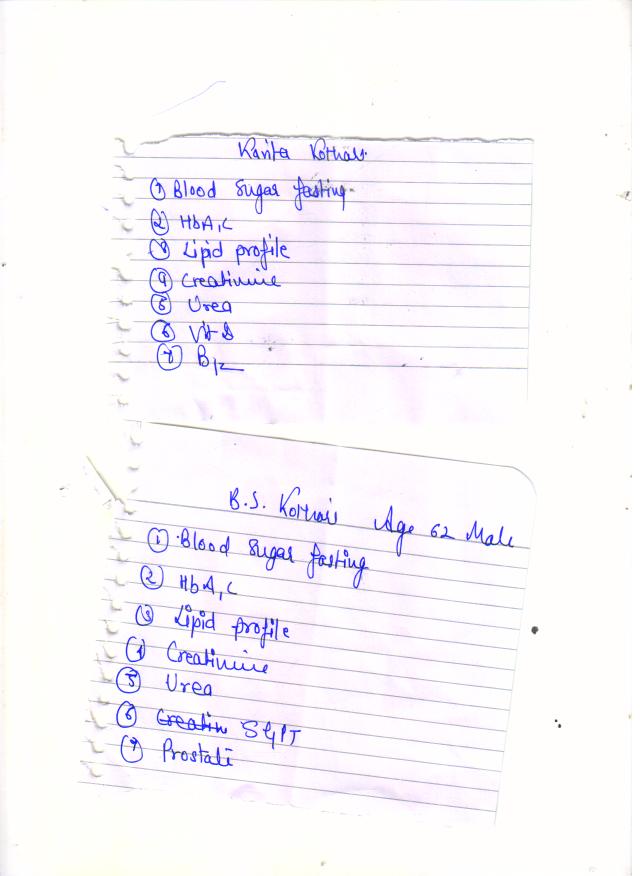 Kavita Kothari
① Blood Sugar fasting
② HbA1C
③ Lipid profile
④ Creatinine
⑤ Urea
⑥ Vit D
⑦ B12
B.S. Kothari Age 62 Male
① Blood Sugar fasting
② HbA1C
③ Lipid profile
④ Creatinine
⑤ Urea
⑥ Creatin SGPT
⑦ Prostate